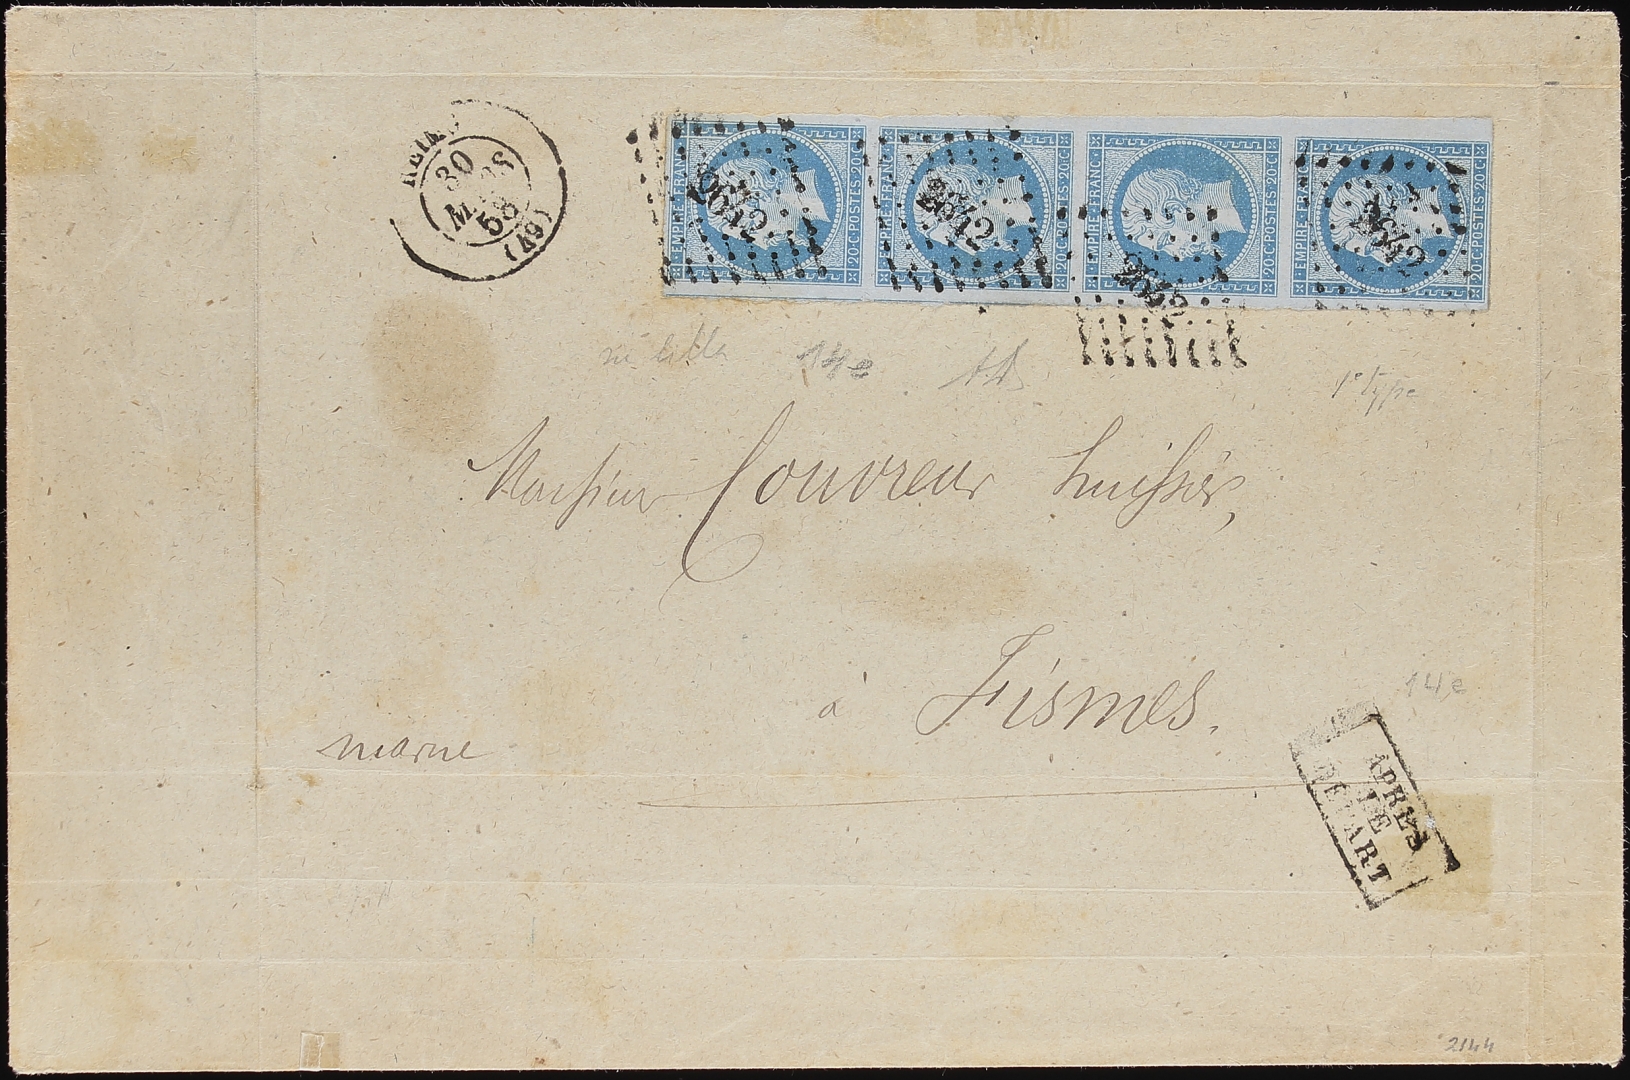 REIMS
30
MARS
58
(49)
EMPIRE FRANC
20·C·POSTES·20·C
2642
EMPIRE·FRANC
20·C·POSTES·20·C
2642
EMPIRE·FRANC
20·C·POSTES·20·C
2642
EMPIRE·FRANC
20·C·POSTES·20·C
2642
14e
1e type
Monsieur Couvreur huissier,
à Fismes.
marne
14e
APRES
LE
DEPART
2144